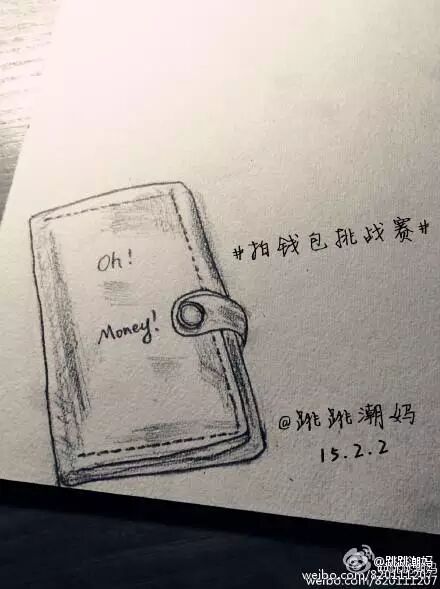 Oh!
Money!
#拍钱包挑战赛#
@跳跳潮妈
15.2.2
@跳跳潮妈
weibo.com/820111207
weibo.com/820111207